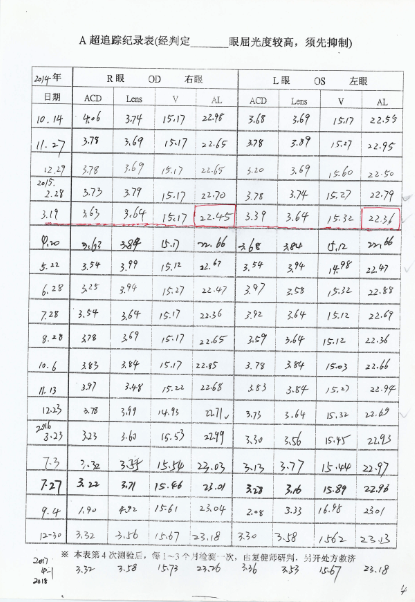 A 超追踪纪录表(经判定______眼屈光度较高，须先抑制)
2014年 R 眼 OD 右眼 L 眼 OS 左眼
日期 ACD Lens V AL ACD Lens V AL
10.14 4.06 3.74 15.17 22.98 3.68 3.69 15.17 22.55
11.27 3.78 3.69 15.17 22.65 3.78 3.89 15.27 22.95
12.29 3.78 3.69 15.17 22.65 3.20 3.69 15.60 22.50
2015.
2.28 3.73 3.79 15.17 22.70 3.78 3.74 15.27 22.79
3.19 3.63 3.64 15.17 22.45 3.39 3.64 15.32 22.36
4.20 3.63 3.84 15.17 22.66 3.68 3.84 15.12 22.66
5.22 3.54 3.99 15.12 22.67 3.54 3.94 14.98 22.47
6.28 3.25 3.94 15.27 22.47 3.97 3.58 15.32 22.88
7.28 3.54 3.64 15.17 22.36 3.92 3.64 15.12 22.69
8.28 3.78 3.69 15.17 22.65 3.59 3.64 15.12 22.36
10.6 3.83 3.84 15.17 22.85 3.78 3.84 15.03 22.66
11.13 3.97 3.48 15.22 22.68 3.83 3.84 15.27 22.94
12.23 3.78 3.99 14.93 22.71 3.73 3.64 15.32 22.69
2016
3.23 3.23 3.60 15.53 22.49 3.30 3.56 15.95 22.93
7.3 3.32 3.34 15.54 23.03 3.13 3.77 15.44 22.97
7.27 3.22 3.71 15.46 23.01 3.28 3.16 15.89 22.96
9.4 1.90 4.92 15.61 23.04 2.08 3.33 16.98 23.01
12-30 3.32 3.56 15.67 23.18 3.30 3.58 15.62 23.13
※ 本表第4次测验后，每1~3个月检查一次，由复健师研判，另开处方救济
2017
3.32 3.58 15.73 23.26 3.36 3.53 15.67 23.18
2018
4